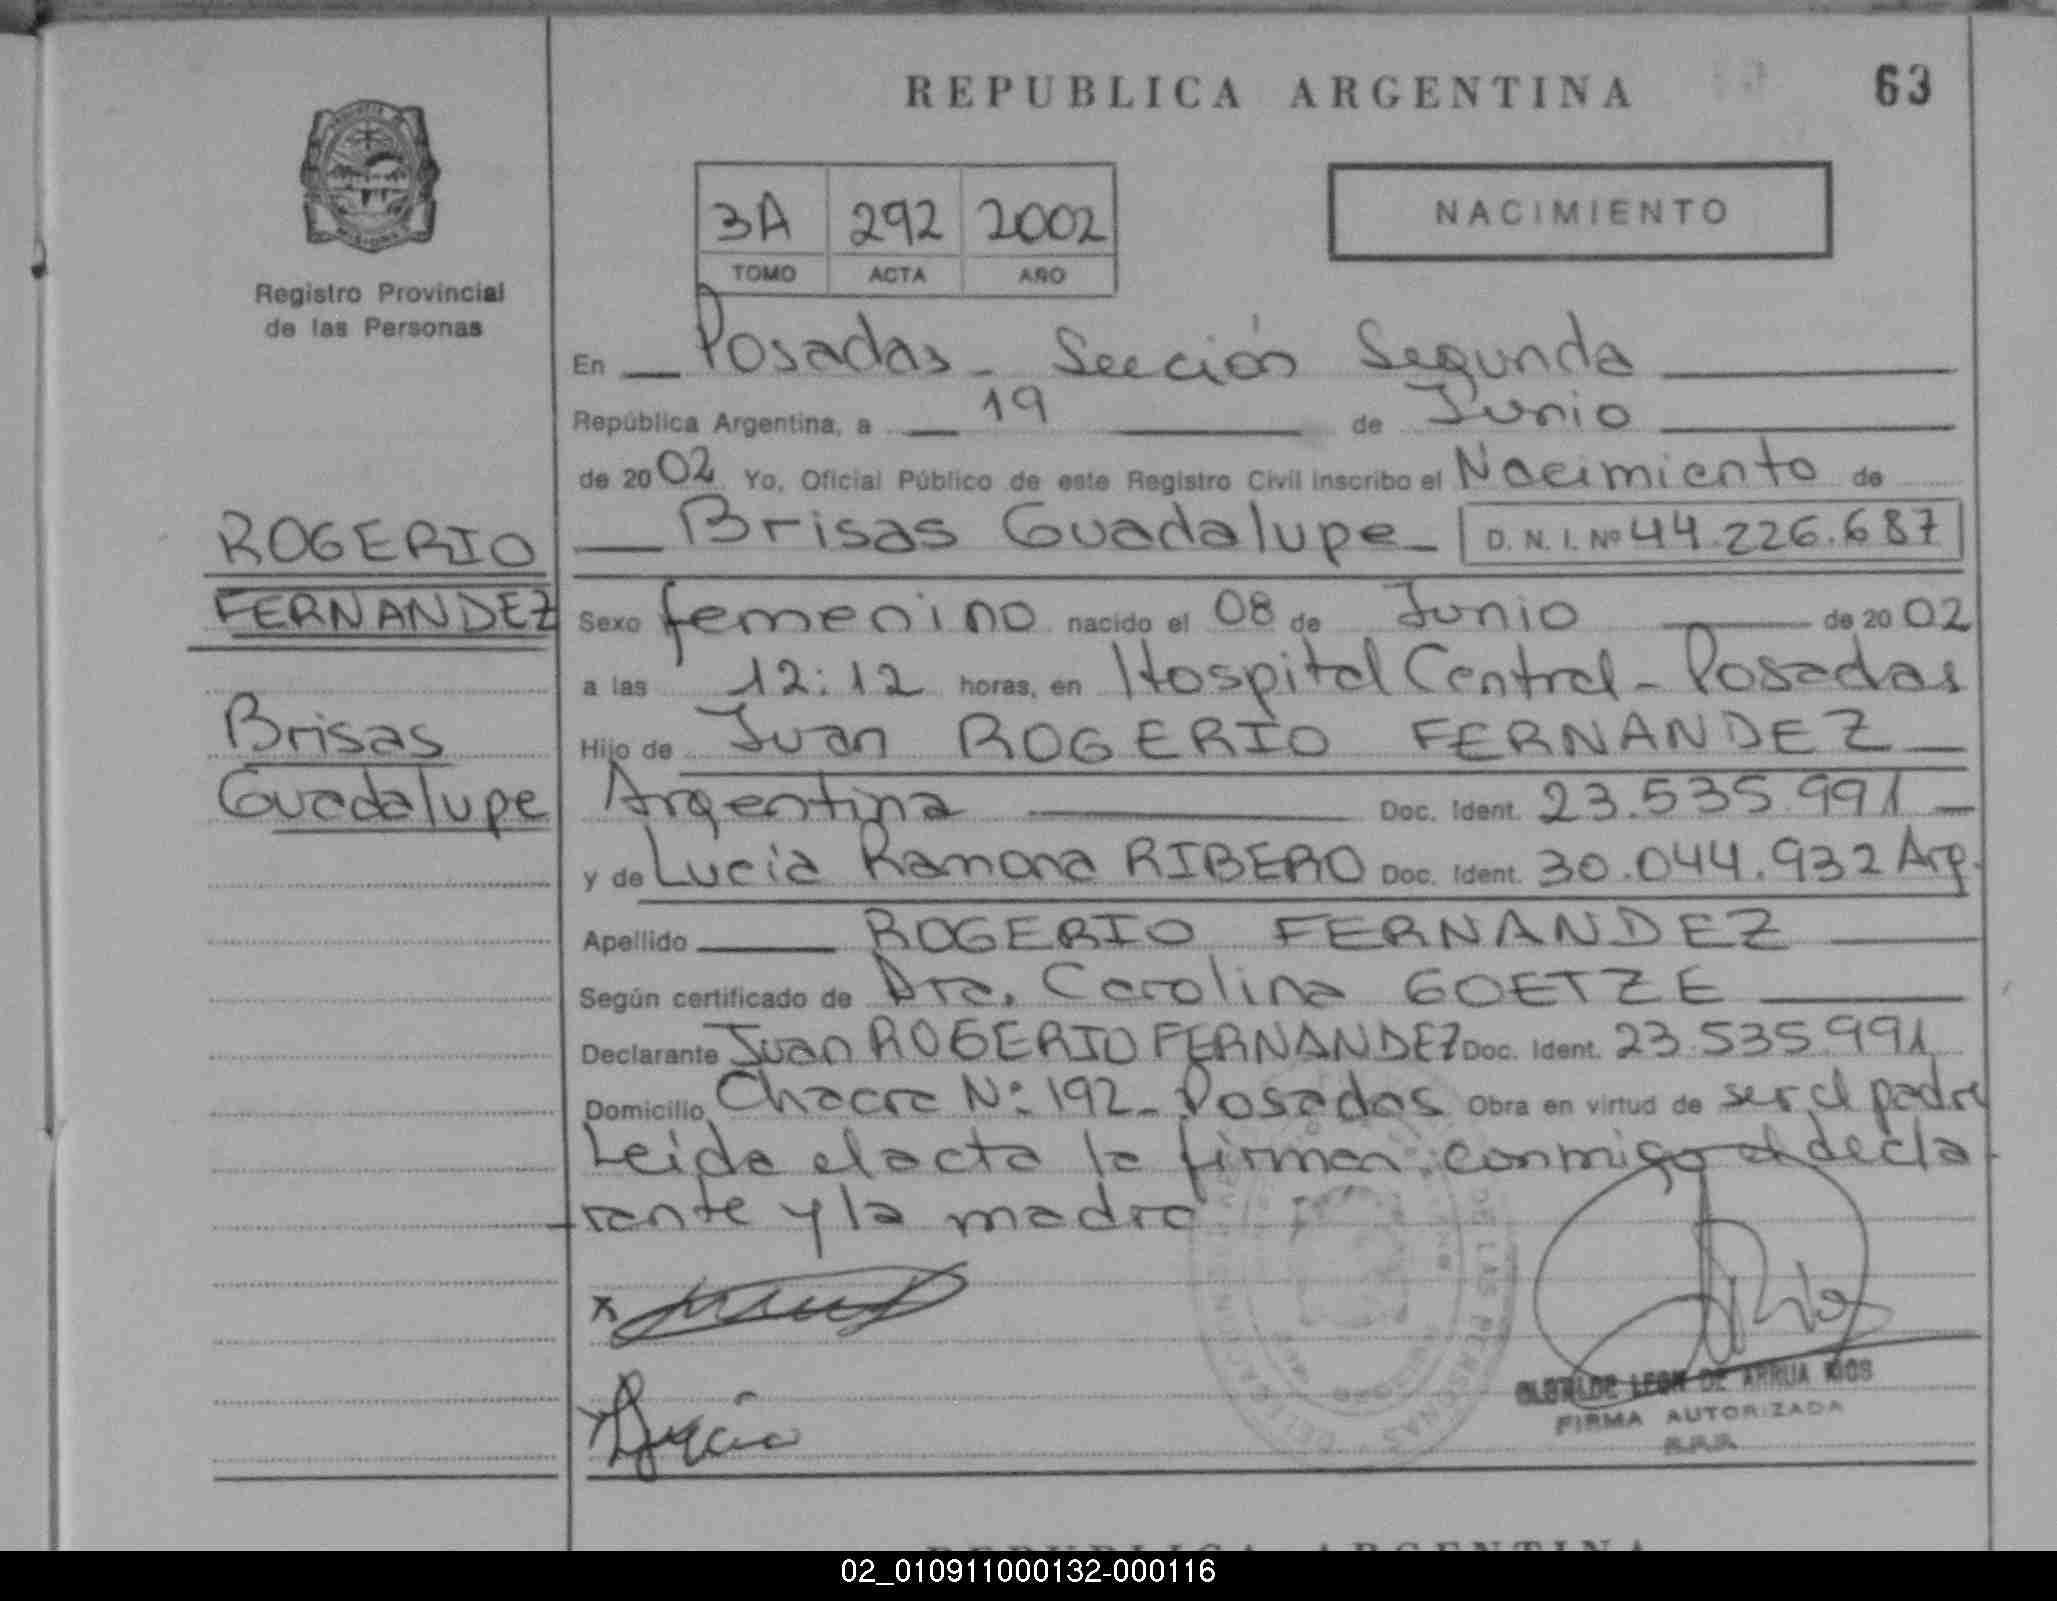 REPUBLICA ARGENTINA
63
3A 292 2002
TOMO ACTA AÑO
NACIMIENTO
Registro Provincial
de las Personas
ROGERIO
FERNANDEZ
Brisas
Guadalupe
En Posadas - Sección Segunda
República Argentina, a 19 de Junio
de 2002 Yo, Oficial Público de este Registro Civil inscribo el Nacimiento de
Brisas Guadalupe - D. N. I. Nº 44.226.687
Sexo femenino nacido el 08 de Junio de 2002
a las 12:12 horas, en Hospital Central - Posadas
Hijo de Juan ROGERIO FERNANDEZ
Argentina Doc. Ident. 23.535.991
y de Lucia Ramona RIBERO Doc. Ident. 30.044.932 Arg.
Apellido ROGERIO FERNANDEZ
Según certificado de Dra. Carolina GOETZE
Declarante Juan ROGERIO FERNANDEZ Doc. Ident. 23.535.991
Domicilio Chacra Nº 192 - Posadas Obra en virtud de ser el padre
Leida el acta la firman conmigo el decla
rante y la madre
CLOTILDE LEON DE ARRUA RIOS
FIRMA AUTORIZADA
R.P.P.
REPUBLICA ARGENTINA
02_010911000132-000116